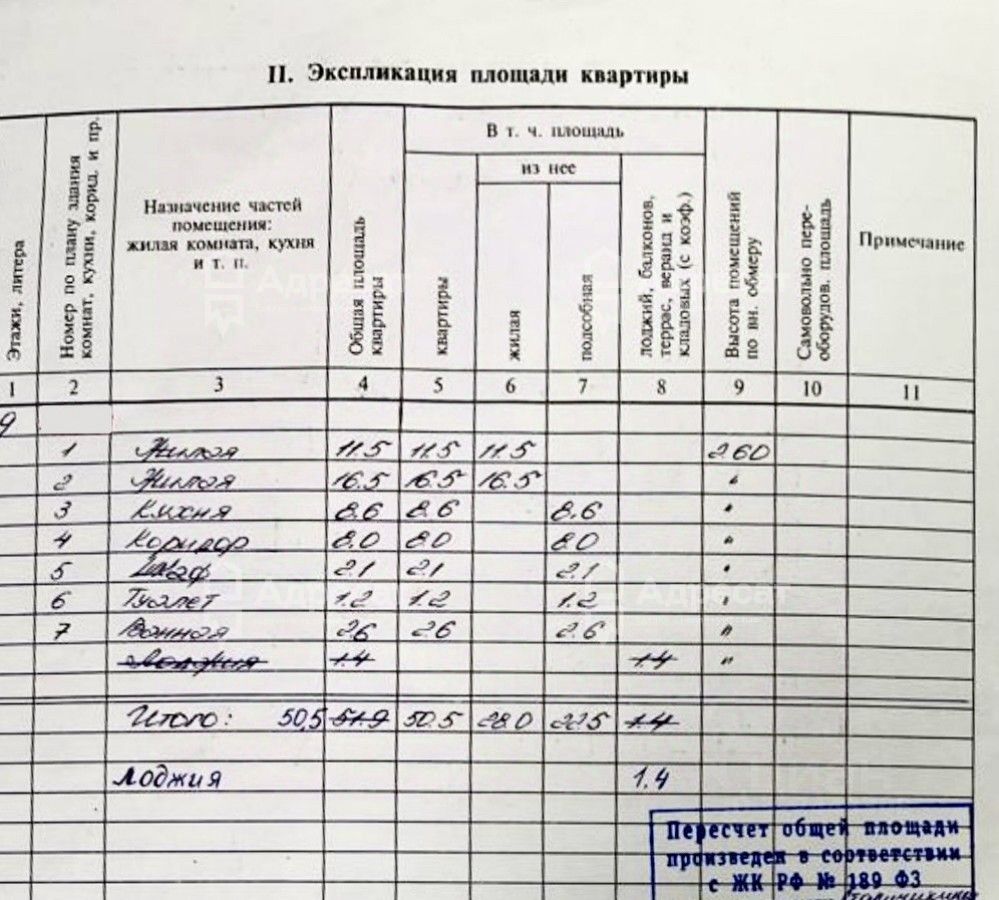 II. Экспликация площади квартиры
Этажи, литера
Номер по плану здания комнат, кухни, корид. и пр.
Назначение частей
помещения:
жилая комната, кухня
и т. п.
Общая площадь квартиры
В т. ч. площадь
квартиры
из нее
жилая
подсобная
лоджий, балконов, террас, веранд и кладовых (с коэф.)
Высота помещений по вн. обмеру
Самовольно пере-
оборудов. площадь
Примечание
1 2 3 4 5 6 7 8 9 10 11
9
1 Жилая 11.5 11.5 11.5 2.60
2 Жилая 16.5 16.5 16.5 "
3 Кухня 8.6 8.6 8.6 "
4 Коридор 8.0 8.0 8.0 "
5 Шкаф 2.1 2.1 2.1 "
6 Туалет 1.2 1.2 1.2 "
7 Ванная 2.6 2.6 2.6 "
Лоджия 1.4 1.4 "
Итого: 50,5 51.9 50.5 28.0 22.5 1.4
Лоджия 1.4
Пересчет общей площади
произведен в соответствии
с ЖК РФ № 189 ФЗ
Адресат
Адресат
Адресат
Адресат